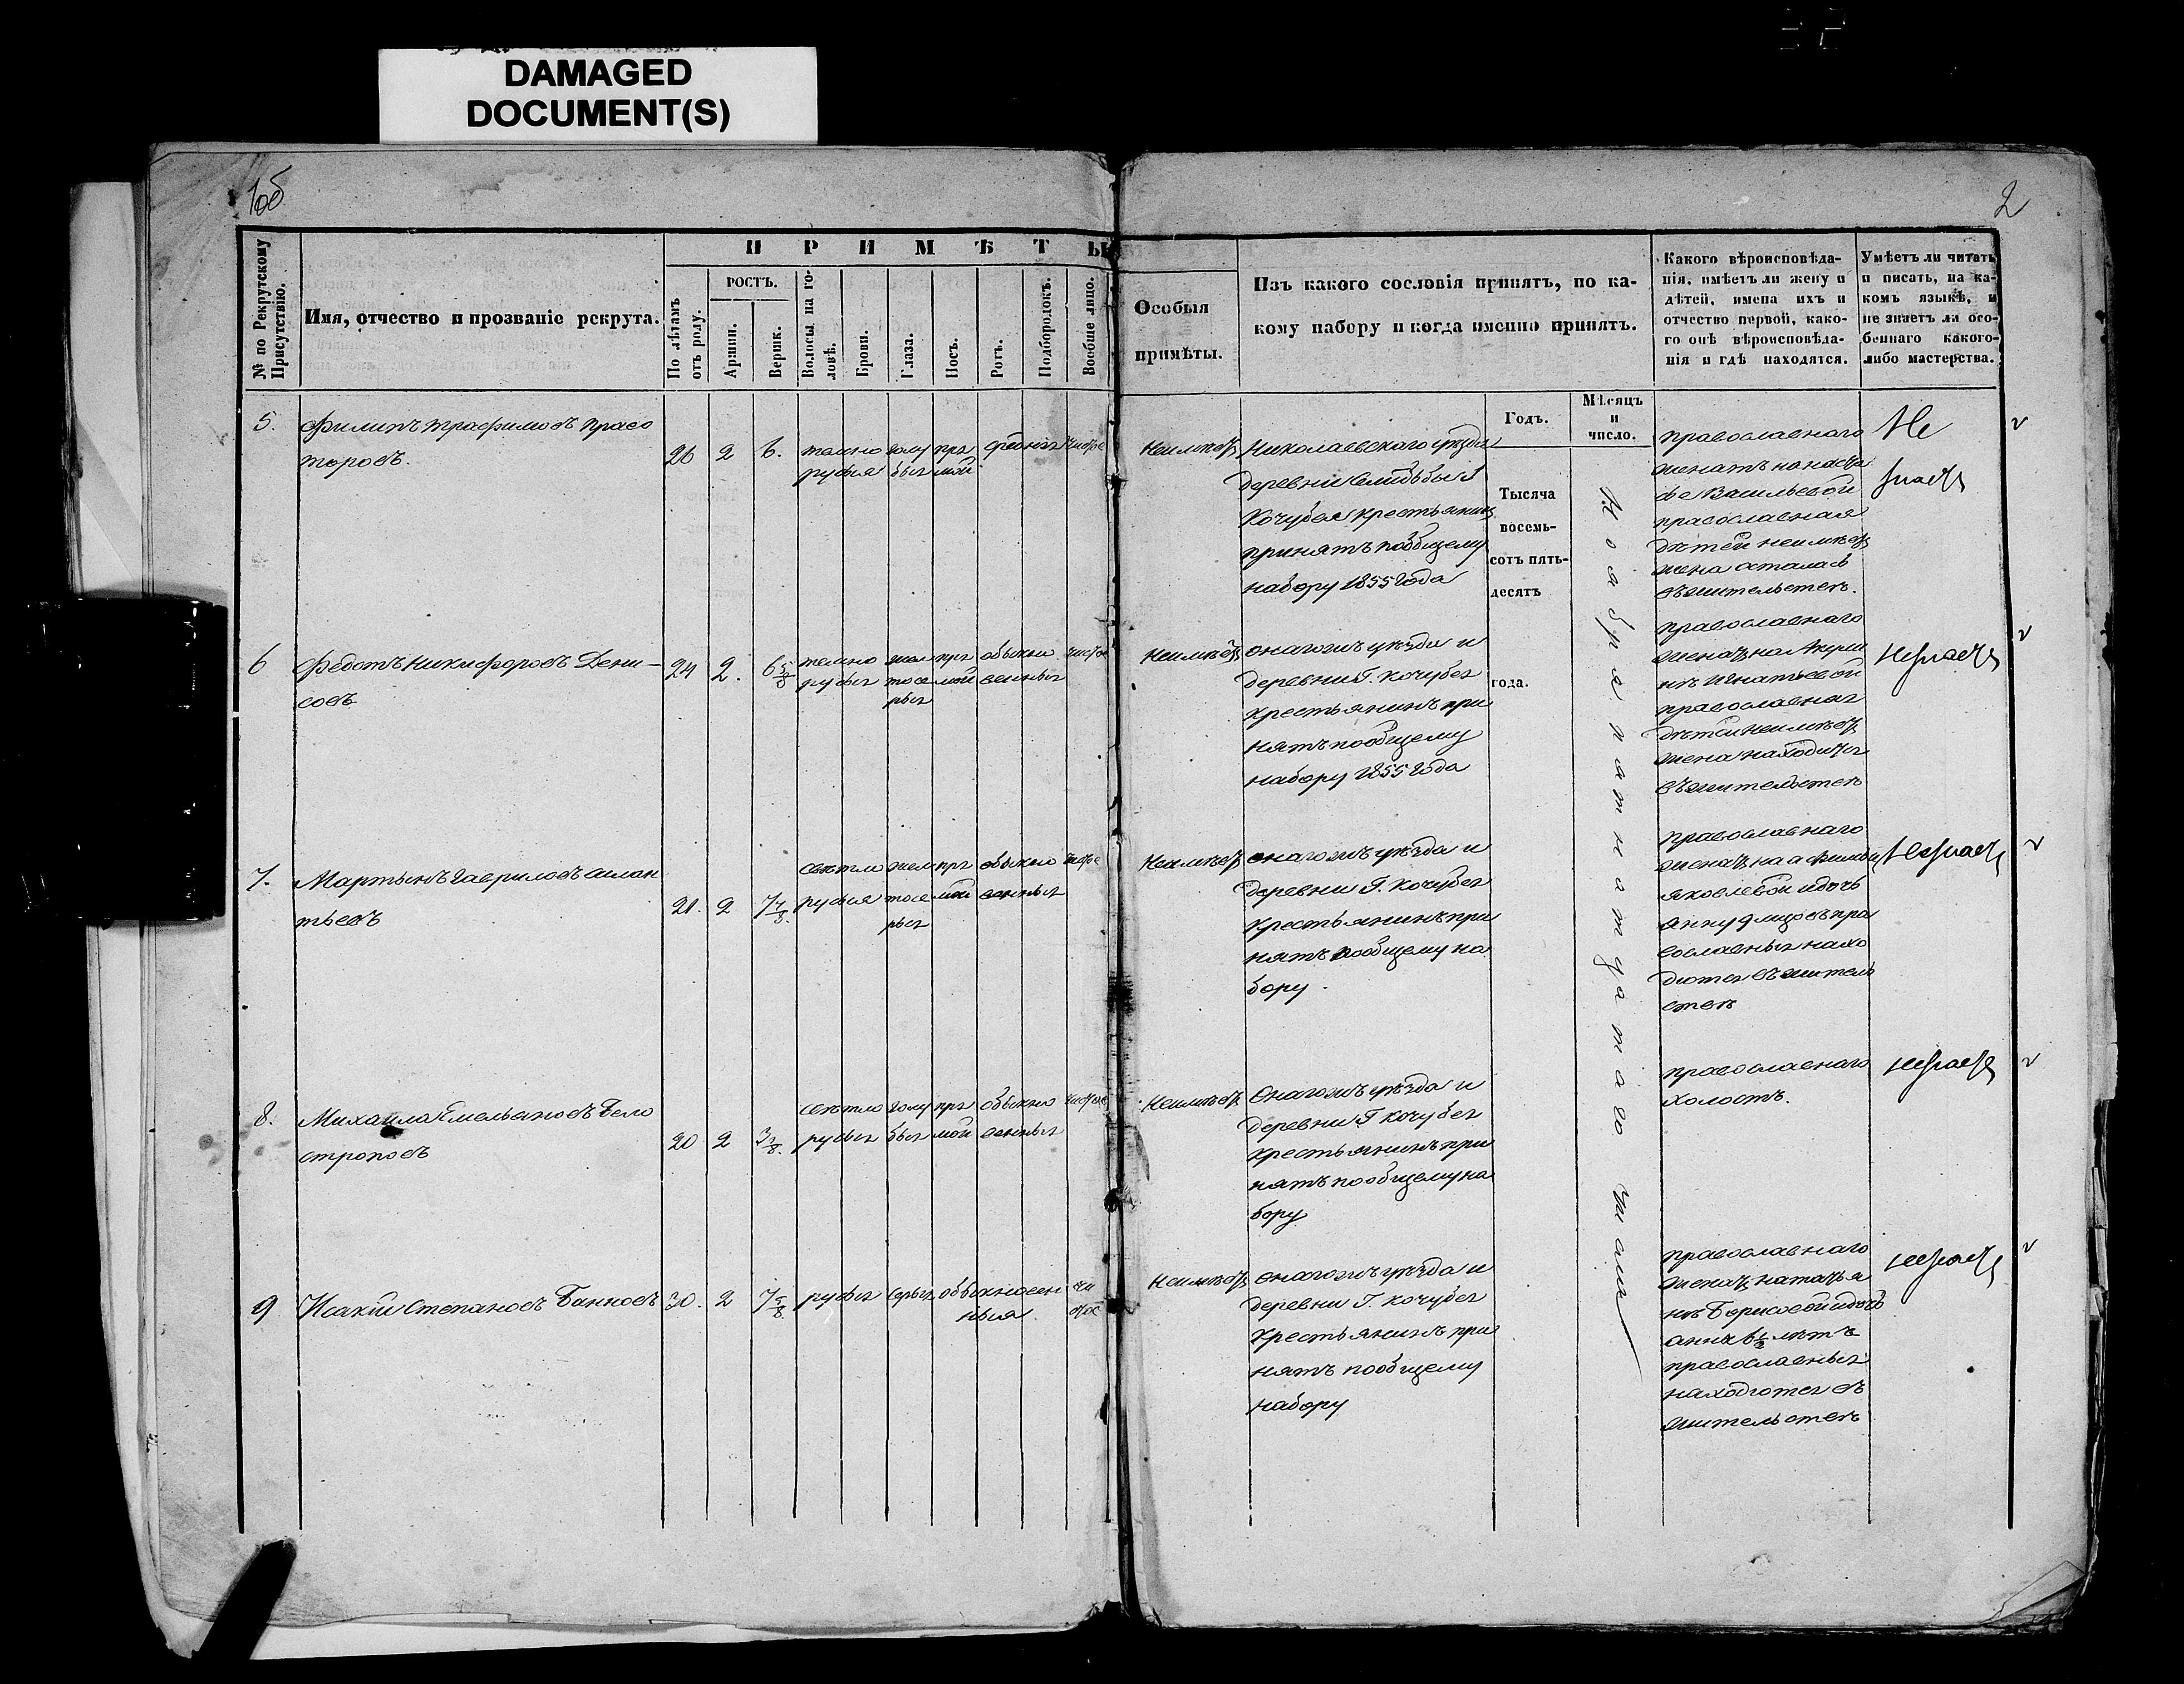 DAMAGED
DOCUMENT(S)
1об
2
ПРИМѢТЫ
№ по Рекрутскому Присутствію.
Имя, отчество и прозваніе рекрута.
По лѣтамъ отъ роду.
РОСТЪ.
Аршин.
Вершк.
Волосы на головѣ.
Брови.
Глаза.
Носъ.
Ротъ.
Подбородокъ.
Вообще лицо.
Особыя
примѣты.
Изъ какого сословія принятъ, по ка-
кому набору и когда именно принятъ.
Годъ.
Мѣсяцъ
и
число.
Какого вѣроисповѣда-
нія, имѣетъ ли жену и
дѣтей, имена ихъ и
отчество первой, како-
го онѣ вѣроисповѣда-
нія и гдѣ находятся.
Умѣетъ ли читать
и писать, на ка-
комъ языкѣ, и
не знаетъ ли осо-
беннаго какого-
либо мастерства.
Тысяча
восемь-
сотъ пять-
десятъ
года.
Ноября пятнадцатаго
5.
Филипъ Трафимовъ
26 2 6.
темно
русыя
голу
быя
пря
мой
средняя
чистое
неимѣетъ
Николаевскаго уѣзда
деревни
Кочубея крестьянинъ
принятъ пообщему
набору 1855 года
православнаго
женатъ на Наста
сье Васильевой
православная
дѣтей неимѣетъ
жена осталась
въжительствѣ.
Не
знаетъ
6
Федотъ Никифоровъ Дени-
совъ
24 2. 6 5/8
темно
русыя
жел
тосе
рыя
пря
мой
обыкно
венныя
чистое
неимѣетъ
онагожъ уѣзда и
деревни Г. Кочубея
крестьянинъ при
нятъ пообщему
набору 1855 года
православнаго
женатъ на Акули
нѣ Игнатьевой
православная
дѣтей неимѣетъ
жена находится
въжительствѣ
незнаетъ
7.
Мартынъ Гавриловъ
тьевъ
21. 2 7 4/8.
свѣтло
русыя
жел
тосе
рыя
пря
мой
обыкно
венныя
чистое
неимѣетъ
онагожъ уѣзда и
деревни Г. Кочубея
крестьянинъ при
нятъ пообщему на
бору.
православнаго
женатъ на Афимьи
Яковлевой и дочь
Анну 9 мѣсецовъ пра
вославныя нахо
дятся въ житель
ствѣ
незнаетъ
8.
Михайла Емельяновъ Бело
строповъ
20 2
свѣтло
русыя
голу
быя
пря
мой
обыкно
венныя
чистое
неимѣетъ
онагожъ уѣзда и
деревни Г Кочубея
крестьянинъ при
нятъ пообщему на
бору
православнаго
холостъ.
незнаетъ
9
Исакий Степановъ Банновъ
30. 2 7 5/8.
русыя
серыя
обыкновен
ныя.
чи
стое
неимѣетъ
онагожъ уѣзда и
деревни Г. Кочубея
крестьянинъ при
нятъ пообщему
набору
православнаго
женатъ на Татья
нѣ Борисовой и дочь
Анна 6 1/2 лѣтъ
православныя
находятся въ
жительствѣ
незнаетъ